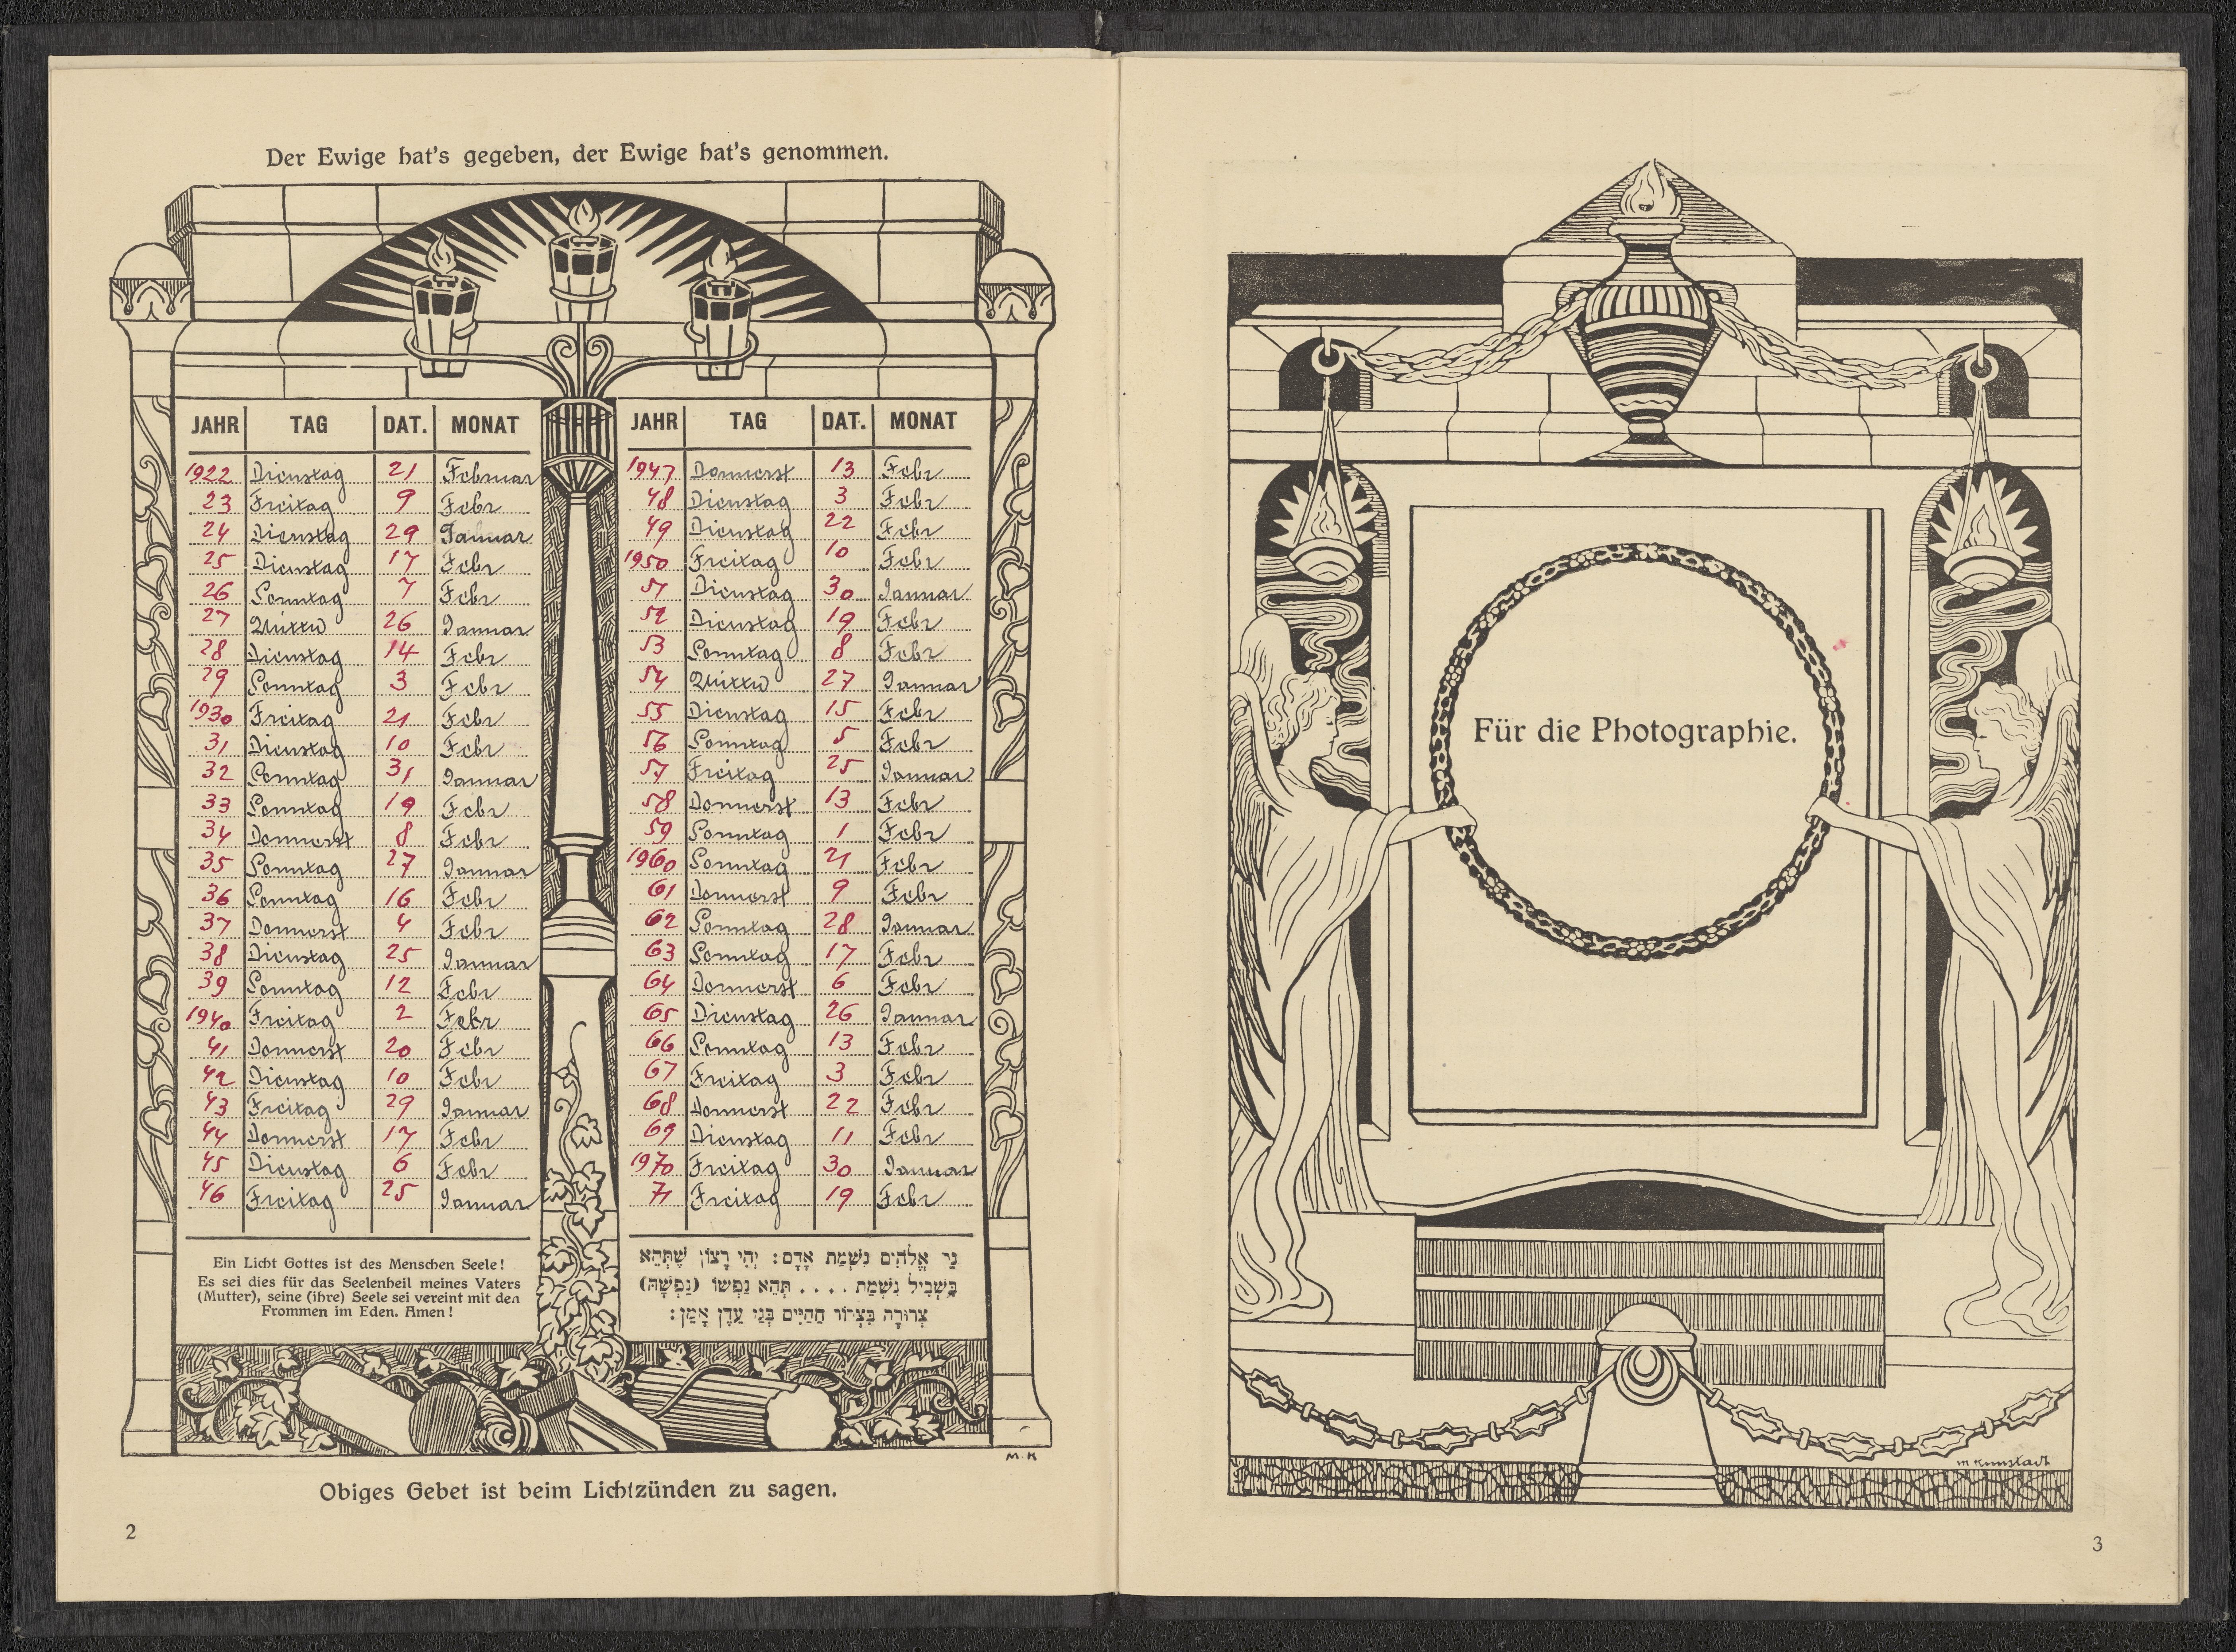 Der Ewige hat's gegeben, der Ewige hat's genommen.
JAHR TAG DAT. MONAT
1922 Dienstag 21 Februar
23 Freitag 9 Febr
24 Dienstag 29 Januar
25 Dienstag 17 Febr
26 Sonntag 7 Febr
27 Mittw 26 Januar
28 Dienstag 14 Febr
29 Sonntag 3 Febr
1930 Freitag 21 Febr
31 Dienstag 10 Febr
32 Sonntag 31 Januar
33 Sonntag 19 Febr
34 Donnerst 8 Febr
35 Sonntag 27 Januar
36 Sonntag 16 Febr
37 Donnerst 4 Febr
38 Dienstag 25 Januar
39 Sonntag 12 Febr
1940 Freitag 2 Febr
41 Donnerst 20 Febr
42 Dienstag 10 Febr
43 Freitag 29 Januar
44 Donnerst 17 Febr
45 Dienstag 6 Febr
46 Freitag 25 Januar
Ein Licht Gottes ist des Menschen Seele!
Es sei dies für das Seelenheil meines Vaters
(Mutter), seine (ihre) Seele sei vereint mit den
Frommen im Eden. Amen!
JAHR TAG DAT. MONAT
1947 Donnerst 13 Febr
48 Dienstag 3 Febr
49 Dienstag 22 Febr
1950 Freitag 10 Febr
51 Dienstag 30 Januar
52 Dienstag 19 Febr
53 Sonntag 8 Febr
54 Mittw 27 Januar
55 Dienstag 15 Febr
56 Sonntag 5 Febr
57 Freitag 25 Januar
58 Donnerst 13 Febr
59 Sonntag 1 Febr
1960 Sonntag 21 Febr
61 Donnerst 9 Febr
62 Sonntag 28 Januar
63 Sonntag 17 Febr
64 Donnerst 6 Febr
65 Dienstag 26 Januar
66 Sonntag 13 Febr
67 Freitag 3 Febr
68 Donnerst 22 Febr
69 Dienstag 11 Febr
1970 Freitag 30 Januar
71 Freitag 19 Febr
נֵר אֱלֹהִים נִשְׁמַת אָדָם: יְהִי רָצוֹן שֶׁתְּהֵא
בִּשְׁבִיל נִשְׁמַת . . . . תְּהֵא נַפְשׁוֹ (נַפְשָׁהּ)
צְרוּרָה בִּצְרוֹר הַחַיִּים בְּגַן עֵדֶן אָמֵן:
M. K
Obiges Gebet ist beim Lichtzünden zu sagen.
2
Für die Photographie.
M Kunstadt
3